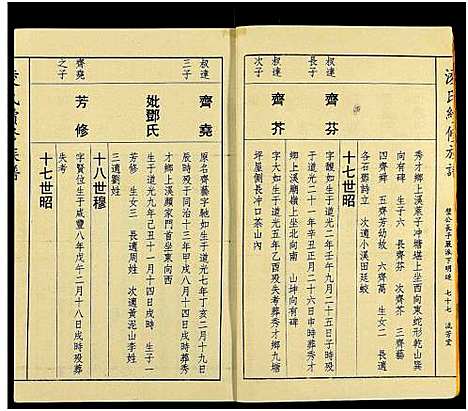 凌氏續修族譜
登公長子展派下明達 七十七 流芳堂
秀才鄉上溪蔗子冲塘堪上坐西向東蛇形乾山巽
向有碑 生子六 長齊芬 次齊芥 三齊藝
四齊舜 五齊芳幼故 六齊蒿 生女二 長適
各石鄧詩立 次適小溪田廷蛟
十七世昭
叔達
長子
齊芬
字馥如生于道光二年壬午九月二十二日戌時歿
于道光二十一年辛丑正月二十六日申時葬秀才
鄉上溪廟嶺上坐北向南 山坤向有碑
叔達
次子
齊芥
字 生于道光五年乙酉歿失考葬秀才鄉九塘
坪屋側長冲口茶山內
叔達
三子
齊堯
原名齊藝字馳如生于道光七年丁亥二月十九日
戌時歿于同治十三年甲戌八月十六日戌時葬秀
才鄉上溪顏家門首坐東向西
妣鄧氏
生于道光九年己丑十一月十四日戌時 生子一
芳修 生女三 長適周姓 次適黃泥山李姓
三適劉姓
十八世穆
齊堯
之子
芳修
字賢位生于咸豐八年戊午二月十八日戌時歿葬
失考
十七世昭